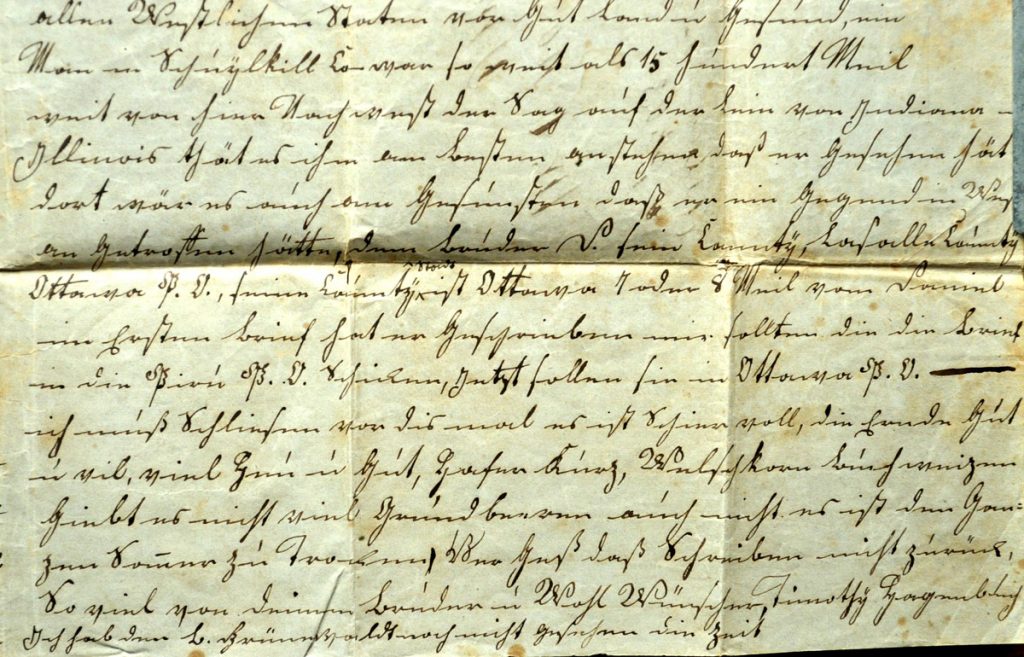 allen Westlichen Staten vor Gut Land u Gesund, ein
Man in Schuÿlkill Co war so weit als 15 hundert Meil
weit von hier Nach west der Sag auf der Lein von Indiana –
Illinois thät es ihm am besten anstehen, daß er Gesehen hät
dort wär es auch am Gesünsten daß er ein Gegend in Wes
an Getroffen hätte, dem Bruder D. sein Caunty, Lasalle Caunty
Ottawa P. O., seine Caunty Stadt ist Ottawa 7 oder 8 Meil vom Daniel
im Ersten brief hat er Geschrieben mir sollten die die brief
in die Piru P. O. Schicken, Jetzt sollen sie in Ottawa P. O. —
ich muß Schliesen vor dis mal es ist Schier voll, die Ernde Gut
u vil, viel Heu u Gut, Hafer Kurz, Welschkorn buchweizen
Giebt es nicht viel Grundbeeren auch nicht es ist den Gan=
zen Somer zu Trocken, Ver Geß daß Schreiben nicht zurück,
So viel von deinem bruder u Wohl Wünscher, Timothÿ Hagenbuch
Ich hab den B. Grünewaldt noch nicht gesehen die Zeit